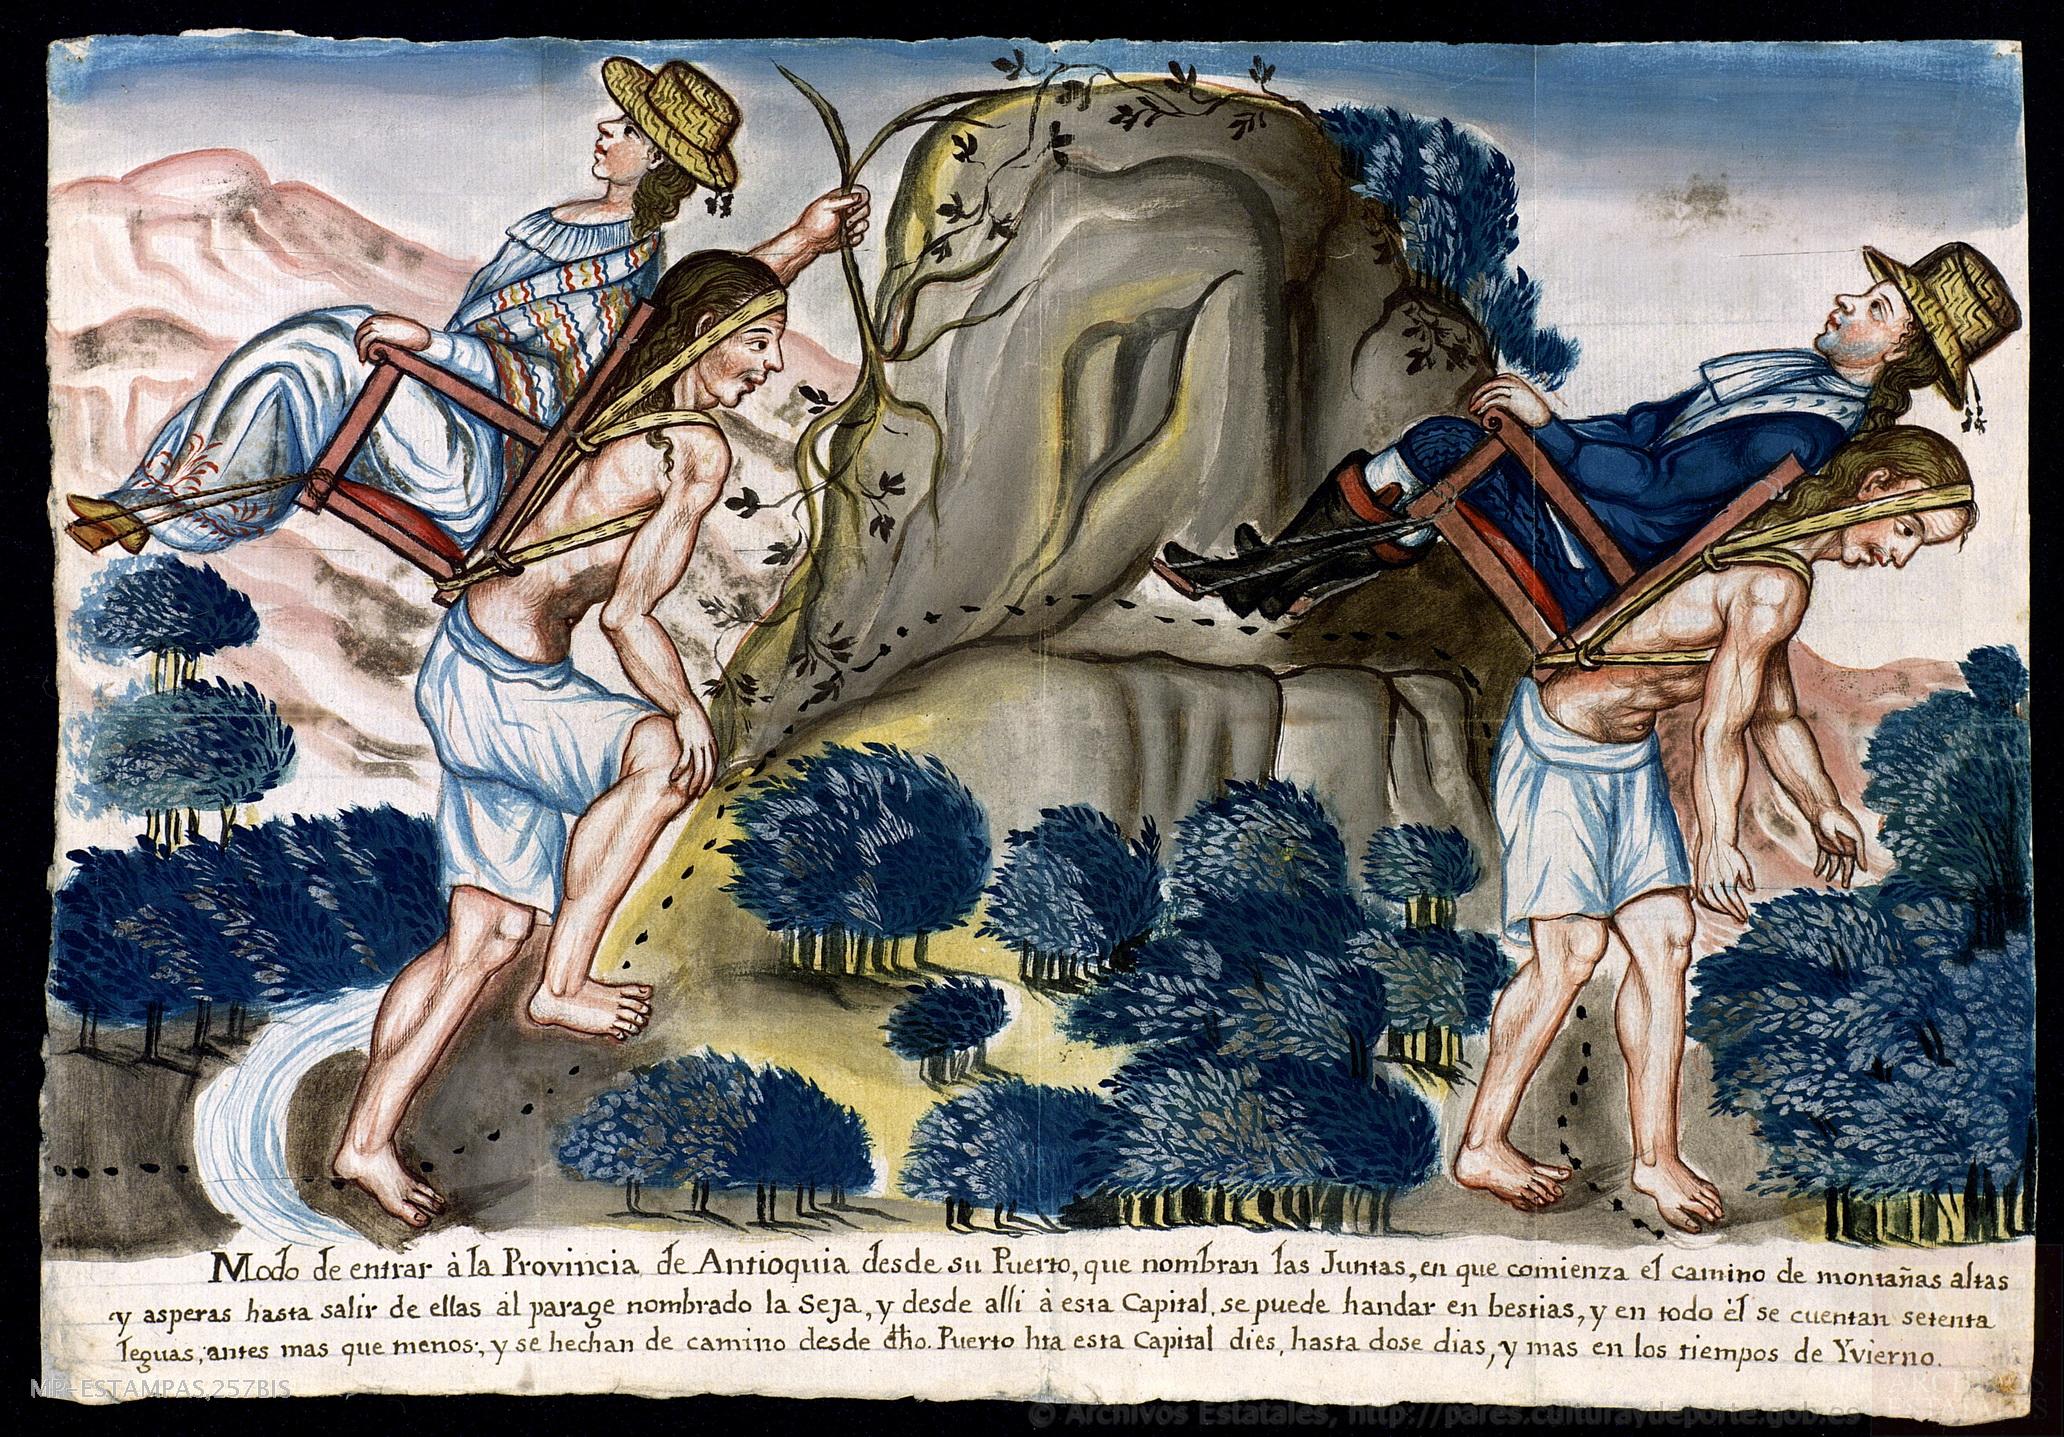 Modo de entrar à la Provincia de Antioquia desde su Puerto, que nombran las Juntas, en que comienza el camino de montañas altas
y asperas hasta salir de ellas àl parage nombrado la Seja, y desde alli à esta Capital, se puede handar en bestias, y en todo èl se cuentan setenta
leguas, antes mas que menos; y se hechan de camino desde dho. Puerto hta esta Capital dies, hasta dose dias, y mas en los tiempos de Yvierno.
MP-ESTAMPAS,257BIS
© Archivos Estatales, http://pares.culturaydeporte.gob.es
ARCHIVOS
ESTATALES